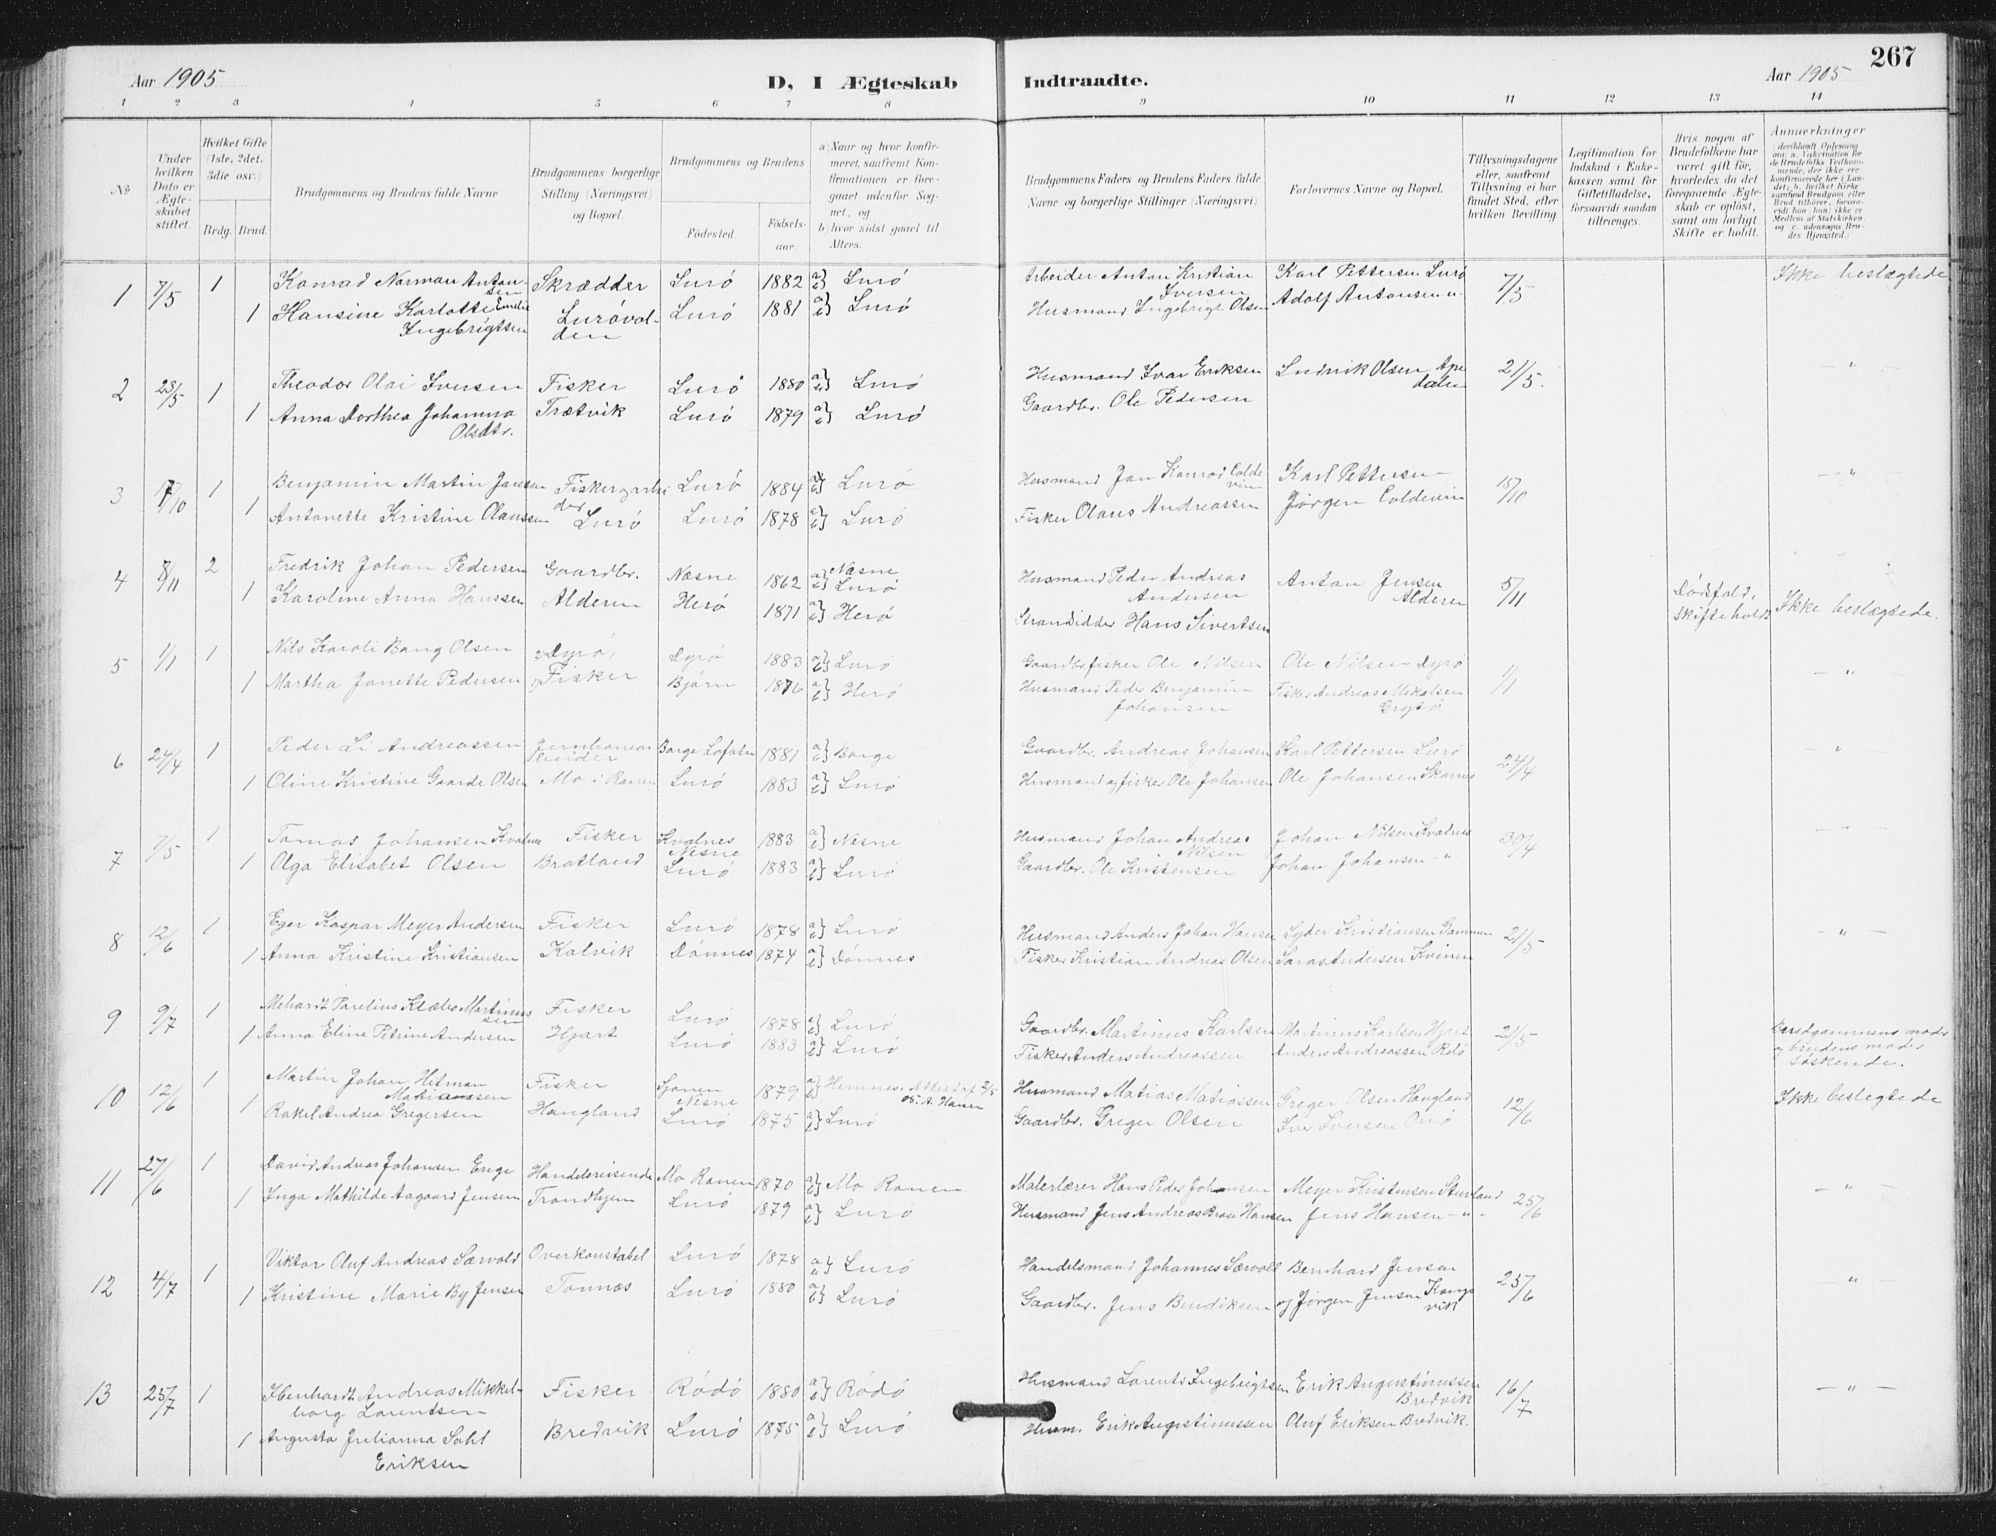 267
Aar 1905
D, I Ægteskab Indtraadte.
Aar 1905
1 2 3 4 5 6 7 8 9 10 11 12 13 14
№
Under hvilken Dato er Ægteskabet stiftet.
Hvilket Gifte (1ste, 2det, 3die osv.)
Brdg. Brud.
Brudgommens og Brudens fulde Navne
Brudgommens borgerlige Stilling (Næringsvei) og Bopæl.
Brudgommens og Brudens
Fødested.
Fødselsaar.
a) Naar og hvor konfirmeret, saafremt Konfirmationen er foregaaet udenfor Sognet, og
b) hvor sidst gaaet til Alters.
Brudgommens Faders og Brudens Faders fulde Navne og borgerlige Stillinger (Næringsvei)
Forlovernes Navne og Bopæl.
Tillysningsdagene eller, saafremt Tillysning ei har fundet Sted, efter hvilken Bevilling
Legitimation for Indskud i Enkekassen samt for Giftetilladelse, forsaavidt saadan tiltrænges.
Hvis nogen af Brudefolkene har været gift før, hvorledes da det foregaaende Ægteskab er opløst, samt om lovligt Skifte er holdt.
Anmærkninger
1 7/5 1 Konrad Norman Antonsen Skrædder Lurö 1882 a) b) Lurö Arbeider Anton Kristian Iversen Karl Pettersen Lurö 7/5 Ikke beslægtede
1 Hansine Karlotte Emilie Ingebrigtsen Lurövolden Lurö 1881 a) b) Lurö Husmand Ingebrigt Olsen Adolf Antonsen "
2 28/5 1 Theodor Olai Iversen Fisker Lurö 1880 a) b) Lurö Husmand Ivar Eriksen Ludvik Olsen Apedalen 21/5. — " —
1 Anna Dorthea Johanna Olsdtr. Trætvik Lurö 1879 a) b) Lurö Gaardbr. Ole Pedersen
3 7/10 1 Benjamin Martin Jansen Fisker og arbeider Lurö 1884 a) b) Lurö Husmand Jan Konrad Coldevin Karl Pettersen — 15/10 — " —
1 Antonette Kristine Olaussen Lurö Lurö 1878 a) b) Lurö Fisker Olaus Andreassen Jørgen Coldevin
4 8/11 2 Fredrik Johan Pedersen Gaardbr. Næsne 1862 a) Næsne b) Lurö Husmand Peder Andreas Andersen Anton Jensen Alderen 5/11 Dödsfald, skifte holdt Ikke beslægtede.
1 Karoline Anna Hanssen Alderen Herö 1871 a) b) Herö Strandsidder Hans Sivertsen
5 1/1 1 Nils Karoli Bang Olsen Dyrö, Dyrö 1883 a) b) Lurö Gaardbr fisker Ole Nilsen Ole Nilsen Dyrö 1/1 — " —
1 Martha Jonette Pedersen Fisker Bjørn 1876 a) b) Herö Husmand Peder Benjamin Johansen Fisker Andreas Mikalsen
6 24/4 1 Peder Li Andreassen Borge Lofoten 1881 a) b) Borge Gaardbr. Andreas Johansen Karl Pettersen Lurö 24/4 — " —
1 Oline Kristine Gaarde Olsen Mo i Ranen Lurö 1883 a) b) Lurö Husmand og fisker Ole Johansen Ole Johansen Skarnes
7 7/5 1 Tomas Johansen Kvalnes Fisker Kvalnes Nesne 1883 a) b) Nesne Husmand Johan Andreas Nilsen Johan Nilsen Kvalnes 30/4 — " —
1 Olga Elisabet Olsen Bratland Lurö 1883 a) b) Lurö Gaardbr. Ole Kristensen Johan Johansen — " —
8 12/6 1 Eger Kaspar Meyer Andersen Fisker Lurö 1878 a) b) Lurö Husmand Anders Johan Hansen Lyder Kristiansen 21/5 — " —
1 Anna Kristine Kristiansen Kalvik Dönnes 1874 a) b) Dönnes Fisker Kristian Andreas Olsen Andersen Kvinen
9 9/7 1 Mehardt Parelius Klæbo Martinussen Fisker Lurö 1878 a) b) Lurö Gaardbr. Martinus Karlsen Martinus Karlsen Hjart 21/5 Brudgommens moder og brudens moder söskende.
1 Anna Eline Petrine Andersen Hjart Lurö 1883 a) b) Lurö Fisker Anders Andreassen Anders Andreassen
10 12/6 1 Martin Johan Hitman Matiassen Fisker Nesne 1879 a) b) Hemnes. Attest af 2/5 Husmand Matias Matiassen Greger Olsen Haugland 12/6 Ikke beslegtede
1 Rakel Andrea Gregersen Haugland Lurö 1875 a) b) Lurö Gaardbr. Greger Olsen Iver Iversen
11 27/6 1 David Andreas Johansen Enge Handelsreisende Mo Ranen 1870 a) b) Mo Ranen Malerlærer Hans Peder Johansen Meyer Kristensen Stuvland 25/6 — " —
1 Inga Mathilde Aagaard Jensen Trondhjem Lurö 1879 a) b) Lurö Husmand Jens Andreas Brose Hansen Jens Hansen — " —
12 4/7 1 Viktor Oluf Andreas Særvold Overkonstabel Lurö 1878 a) b) Lurö Handelsmand Johannes Særvold Bernhard Jensen 25/6 — " —
1 Kristine Marie By Jensen Tonnæs Lurö 1880 a) b) Lurö Gaardbr. Jens Bendiksen og Jörgen Jensen Kongsvik
13 25/7 1 Ebenhardt Andreas Mikkelborg Lorentsen Fisker Rödö 1880 a) b) Rödö Husmand Lorents Ingebrigtsen Erik Augustinussen Bredvik 16/7 — " —
1 Augusta Julianna Dahl Eriksen Bredvik Lurö 1875 a) b) Lurö Husm. Erik Augustinussen Oluf Eriksen Bredvik.